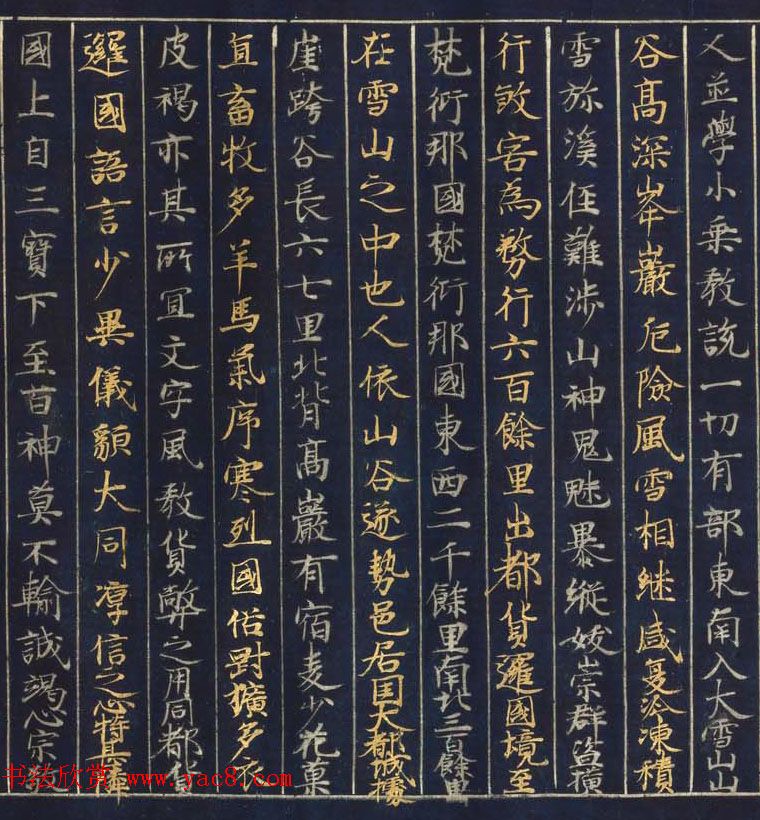 人並學小乘教說一切有部東南入大雪山山
谷高深峯巖危險風雪相継盛夏冷凍積
雪弥溪徑難涉山神鬼魅暴縱妖崇群盜橫
行煞害為務行六百餘里出都貨邏國境至
梵衍那國梵衍那國東西二千餘里南北三百餘里
在雪山之中也人依山谷逐勢邑居国大都城據
崖跨谷長六七里北背高巖有宿麦少花菓
宜畜牧多羊馬氣序寒烈國俗剛獷多衣
皮褐亦其所宜文字風教貨弊之用同都貨
邏國語言少異儀貌大同淳信之心特甚隣
國上自三寶下至百神莫不輸誠竭心宗敬
书法欣赏 www.yac8.com